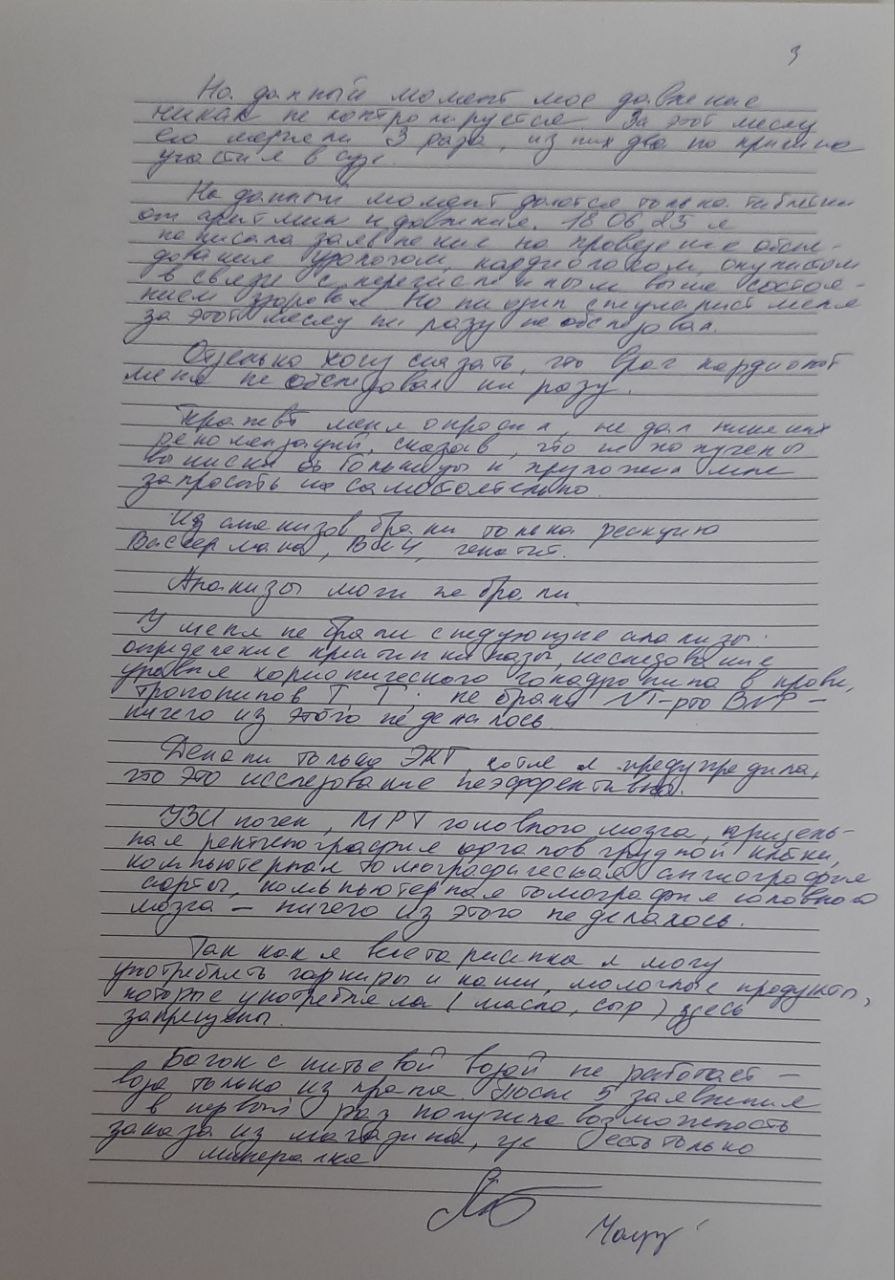 3
На данный момент мое давление
никак не контролируется. За этот месяц
его меряли 3 раза, из них два по причине
участия в суде.
На данный момент даются только таблетки
от аритмии и давления. 18.06.25 я
написала заявление на проведение обсле-
дования урологом, кардиологом, окулистом
в связи с перечисленным выше состоя-
нием здоровья. Но ни один специалист меня
за этот месяц ни разу не обследовал.
Отдельно хочу сказать, что врач кардиолог
меня не обследовал ни разу.
меня опросил, не дал никаких
рекомендаций, сказав, что не получены
выписки из больницы и предложил мне
запросить их самостоятельно.
Из анализов брали только реакцию
Вассермана, ВИЧ, гепатит.
Анализы мочи не брали.
У меня не брали следующие анализы:
определение креатинкиназы, исследование
уровня хорионического гонадропина в крови,
тропонинов I, T; не брали NT-pro BNP –
ничего из этого не делалось.
Делали только ЭКГ, хотя я предупредила,
что это исследование неэффективно.
УЗИ почек, МРТ головного мозга, прицель-
ная рентгенография органов грудной клетки,
компьютерная томографическая ангиография
аорты, компьютерная томография головного
мозга – ничего из этого не делалось.
Так как я вегетарианка я могу
употреблять гарниры и каши, молочные продукты,
которые употребляла (масло, сыр) здесь
запрещены.
Бачок с питьевой водой не работает –
вода только из крана. После 5 заявления
в первый раз получила возможность
заказа из магазина, где есть только
минералка